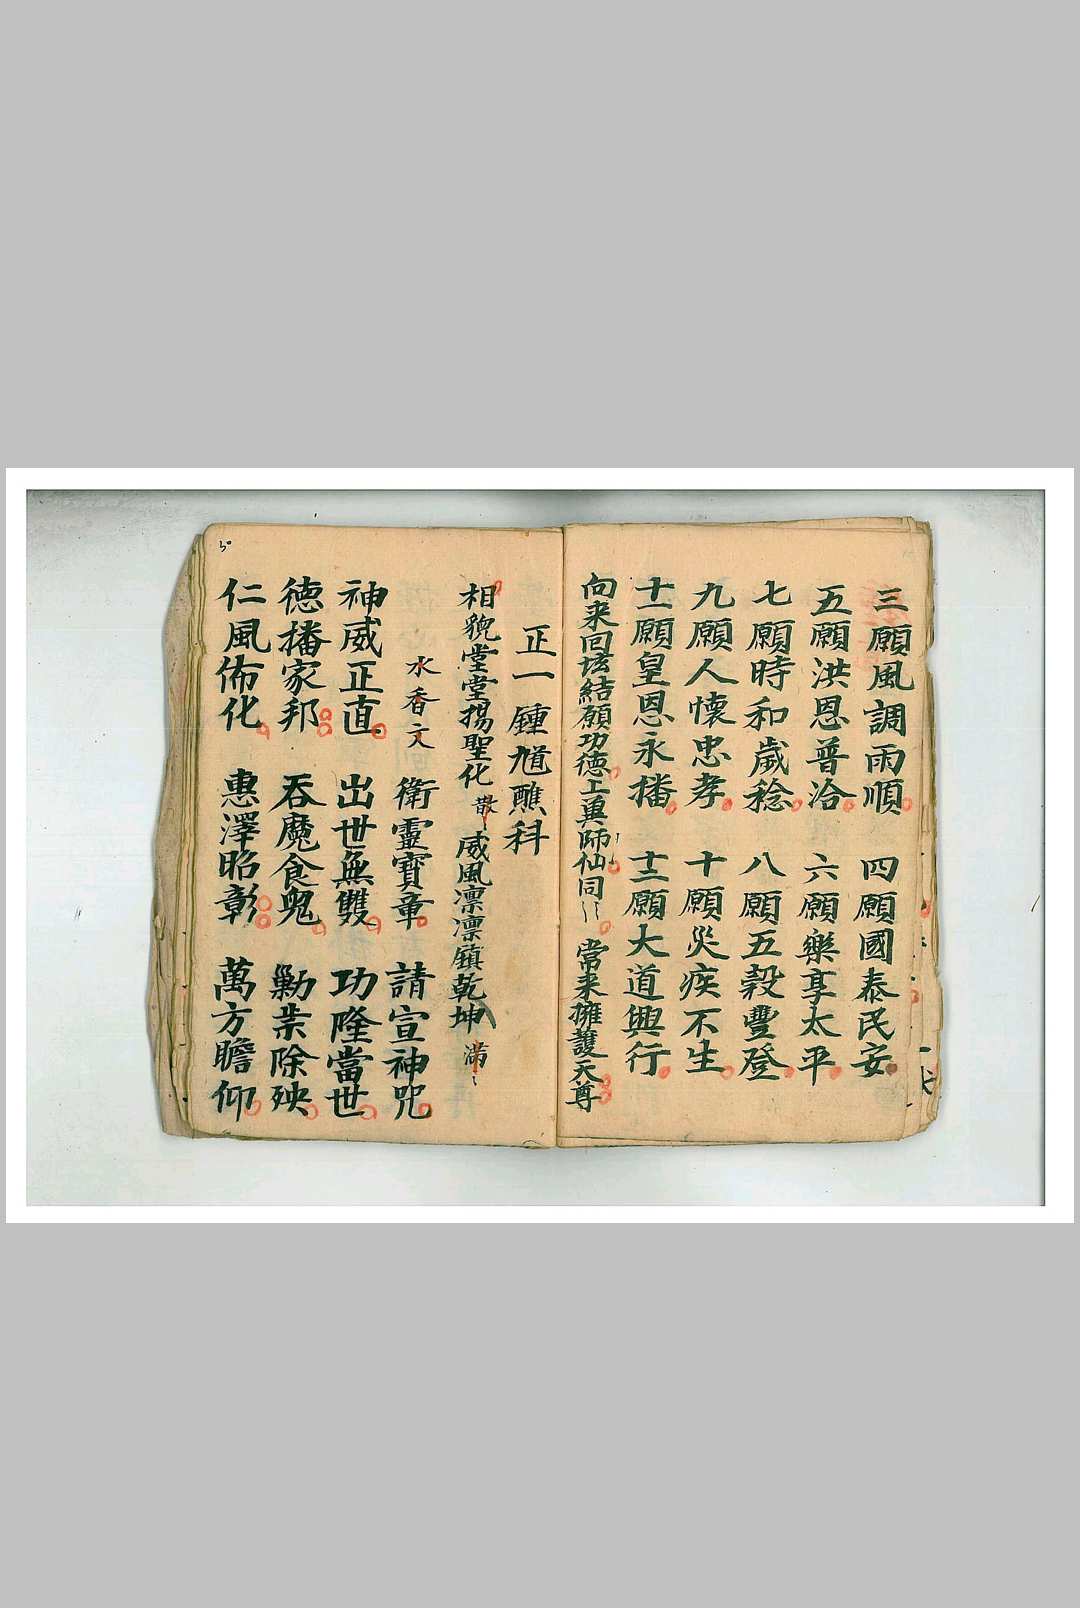 三願風調雨順 四願國泰民安
五願洪恩普洽 六願樂享太平
七願時和歲稔 八願五穀豐登
九願人懷忠孝 十願災疾不生
十一願皇恩永播 十二願大道興行
向来回壇結願功德上奠師仙同〻 常来擁護天尊
正一鍾馗醮科
相貌堂堂揚聖化 散 威風凛凛鎮乾坤 满〻
水香文 衛靈寶章 請宣神咒
神威正直 出世無雙 功隆當世
德播家邦 吞魔食鬼 勦祟除殃
仁風佈化 惠澤昭彰 萬方瞻仰